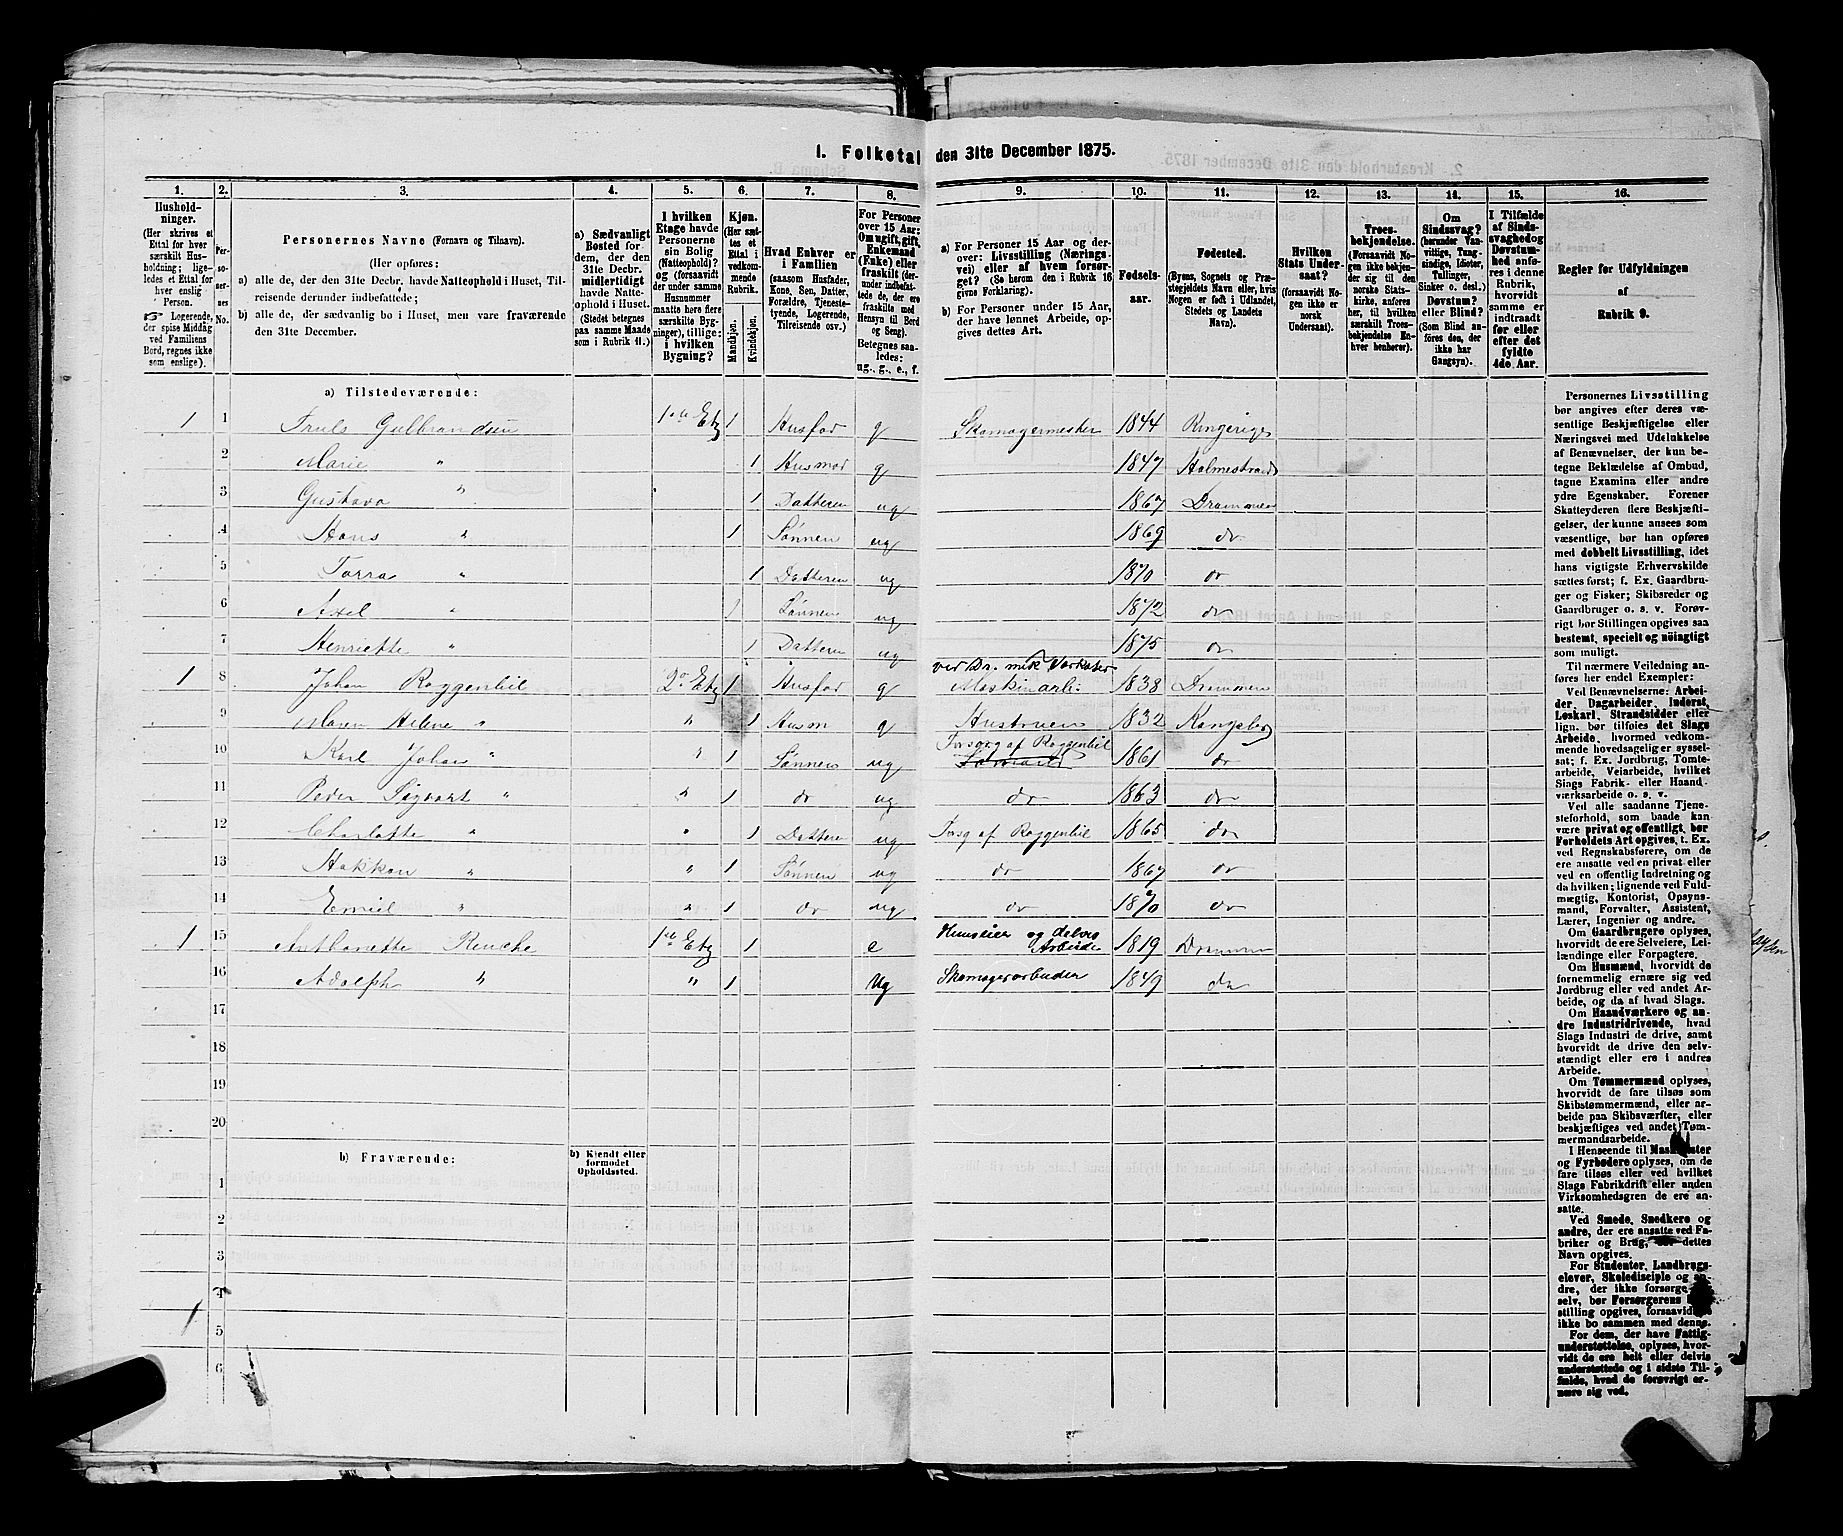 1. Folketal den 31te December 1875.
1. 2. 3. 4. 5. 6. 7. 8. 9. 10. 11. 12. 13. 14. 15. 16.
Hushold-
ninger.
(Her skrives et
Ettal for hver
særskilt Hus-
holdning; lige-
ledes et Ettal
for hver
enslig
Person.
☞ Logerende,
der spise Middag
ved Familiens
Bord, regnes ikke
som enslige).
Per-
so-
ner-
nes
No.
Personernes Navne (Fornavn og Tilnavn).
(Her opføres:
a) alle de, der den 31te Decbr. havde Natteophold i Huset, Til-
reisende derunder indbefattede;
b) alle de, der sædvanlig bo i Huset, men vare fraværende
den 31te December.
a) Sædvanligt
Bosted for
dem, der den
31te Decbr.
midlertidigt
havde Natte-
ophold i Huset.
(Stedet betegnes
paa samme Maade
som i Rubrik 11.)
I hvilken
Etage havde
Personerne
sin Bolig
(Natteophold)?
og (forsaavidt
der under samme
Husnummer
maatte høre flere
særskilte Byg-
ninger), tillige:
i hvilken
Bygning?
Kjøn.
(Her sæt-
tes et
Ettal i
vedkom-
mende
Rubrik.
Mandkjøn.
Kvindekjøn.
Hvad Enhver er
i Familien
(saasom Husfader,
Kone, Søn, Datter,
Forældre, Tjeneste-
tyende, Logerende,
Tilreisende osv.)
For Personer
over 15 Aar:
Om ugift, gift,
Enkemand
(Enke) eller
fraskilt (der-
under indbefat-
tede de, der ere
fraskilte med
Hensyn til Bord
og Seng).
Betegnes saa-
ledes:
ug., g., e., f.
a) For Personer 15 Aar og der-
over: Livsstilling (Nærings-
vei) eller af hvem forsør-
get? (Se herom den i Rubrik 16
givne Forklaring).
b) For Personer under 15 Aar,
der have lønnet Arbeide, op-
gives dettes Art.
Fødsels-
aar.
Fødested.
(Byens, Sognets og Præ-
stegjeldets Navn eller, hvis
Nogen er født i Udlandet,
Stedets og Landets
Navn).
Hvilken
Stats Under-
saat?
(forsaavidt No-
gen ikke er
norsk
Undersaat).
Troes-
bekjendelse.
(Forsaavidt No-
gen ikke bekjen-
der sig til den
norske Stats-
kirke, anføres
her, til hvilken
særskilt Troes-
bekjendelse En-
hver henhører).
Om
Sindssvag?
(herunder Van-
vittige, Tung-
sindige, Idioter,
Tullinger,
Sinker o. desl.)
Døvstum?
eller Blind?
(Som Blind an-
føres den, der
ikke har
Gangsyn).
I Tilfælde
af Sinds-
svaghed og
Døvstum-
hed anfø-
res i denne
Rubrik,
hvorvidt
samme er
indtraadt
før eller
efter det
fyldte
4de Aar.
Regler for Udfyldningen
af
Rubrik 9.
a) Tilstedeværende:
1 1 Truls Gulbrandsen 1ste Etg 1 Husfad g Skomagermester 1844 Ringerige
2 Marie " 1 Husmod g 1847 Holmestrand
3 Gustava " 1 Datteren ug 1867 Drammen
4 Hans " 1 Sønnen ug 1869 do
5 Torra " 1 Datteren ug 1870 do
6 Axel " 1 Sønnen ug 1872 do
7 Henriette " 1 Datteren ug 1875 do
ved Dr. mek Værksted
1 8 Johan Roggenbil 2 Etg 1 Husfad g Maskinarb: 1838 Drammen
9 Maren Helene " " 1 Husm g Hustruen 1832 Kongsberg
10 Karl Johan " " 1 Sønnen ug Forsorg af Roggenbil 1861 do
11 Peder Sigvart " " 1 do ug do 1863 do
12 Charlotte " " 1 Datteren ug Forsg af Roggenbil 1865 do
13 Hakkon " " 1 Sønnen ug do 1867 do
14 Emiel " " 1 do ug do 1870 do
1 15 Anthonette Rencke 1ste Etg 1 e Huuseier og delvis Arbeide 1819 Drammen
16 Adolph " " 1 ug Skomagerarbeider 1849 do
17
18
19
20
b) Fraværende:
b) Kjendt eller
formodet
Opholdssted.
1
2
3
4
1 5
6
Personernes Livsstilling
bør angives efter deres væ-
sentlige Beskjæftigelse eller
Næringsvei med Udelukkelse
af Benævnelser, der kun be-
tegne Beklædelse af Ombud,
tagne Examina eller andre
ydre Egenskaber. Forener
Skatteyderen flere Beskjæfti-
gelser, der kunne ansees som
væsentlige, bør han opføres
med dobbelt Livsstilling, idet
hans vigtigste Erhvervskilde
sættes først; f. Ex. Gaardbru-
ger og Fisker; Skibsreder og
Gaardbruger o. s. v. Forøv-
rigt bør Stillingen opgives saa
bestemt, specielt og nöiagtigt
som muligt.
Til nærmere Veiledning an-
føres her endel Exempler:
Ved Benævnelserne: Arbei-
der, Dagarbeider, Inderst,
Løskarl, Strandsidder eller
lign. bør tilføies det Slags
Arbeide, hvormed vedkom-
mende hovedsagelig er syssel-
sat; f. Ex. Jordbrug, Tomte-
arbeide, Veiarbeide, hvilket
Slags Fabrik- eller Haand-
værksarbeide o. s. v.
Ved alle saadanne Tjene-
steforhold, som baade kan
være privat og offentligt, bør
Forholdets Art opgives, t. Ex.
ved Regnskabsførere, om de
ere ansatte ved en privat eller
ved en offentlig Indretning og
da hvilken; lignende ved Fuld-
mægtig, Kontorist, Opsyns-
mand, Forvalter, Assistent,
Lærer, Ingeniør og andre.
Om Gaardbrugere oplyses,
hvorvidt de ere Selveiere, Lei-
lændinge eller Forpagtere.
Om Husmænd, hvorvidt de
fornemmelig ernære sig ved
Jordbrug eller ved andet Ar-
beide, og da af hvad Slags.
Om Haandværkere og an-
dre Industridrivende, hvad
Slags Industri de drive, samt
hvorvidt de drive den selv-
stændigt eller ere i andres
Arbeide.
Om Tømmermænd oplyses,
hvorvidt de fare tilsøs som
Skibstømmermænd, eller ar-
beide paa Skibsværfter, eller
beskjæftiges ved andet Tøm-
mermandsarbeide.
I Henseende til Maskinister
og Fyrbødere oplyses, om de
fare tilsøs eller ved hvilket
Slags Fabrikdrift eller anden
Virksomhedsgren de ere an-
satte.
Ved Smede, Snedkere og
andre, der ere ansatte ved Fa-
briker og Brug, bør dettes
Navn opgives.
For Studenter, Landbrugs-
elever, Skoledisciple og an-
dre, der ikke forsørge sig
selv, bør Forsørgerens
stilling opgives, forsaavidt de
ikke bo sammen med denne.
For dem, der have Fattig-
understøttelse, oplyses, hvor-
vidt de ere helt eller delvis
understøttede og i sidste Til-
fælde, hvad de forøvrigt er-
nære sig ved.